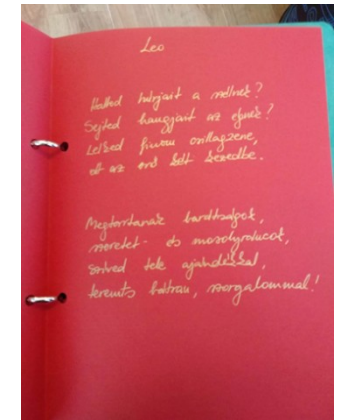 Leo
Hallod húrjait a szélnek?
Sejted hangjait az égnek?
Lelked finom csillagzene,
ott az erő két kezedbe.
Megtartanak barátságok,
szeretet- és mosolyvirágok,
szíved tele ajándékkal,
teremts bátran, szorgalommal!